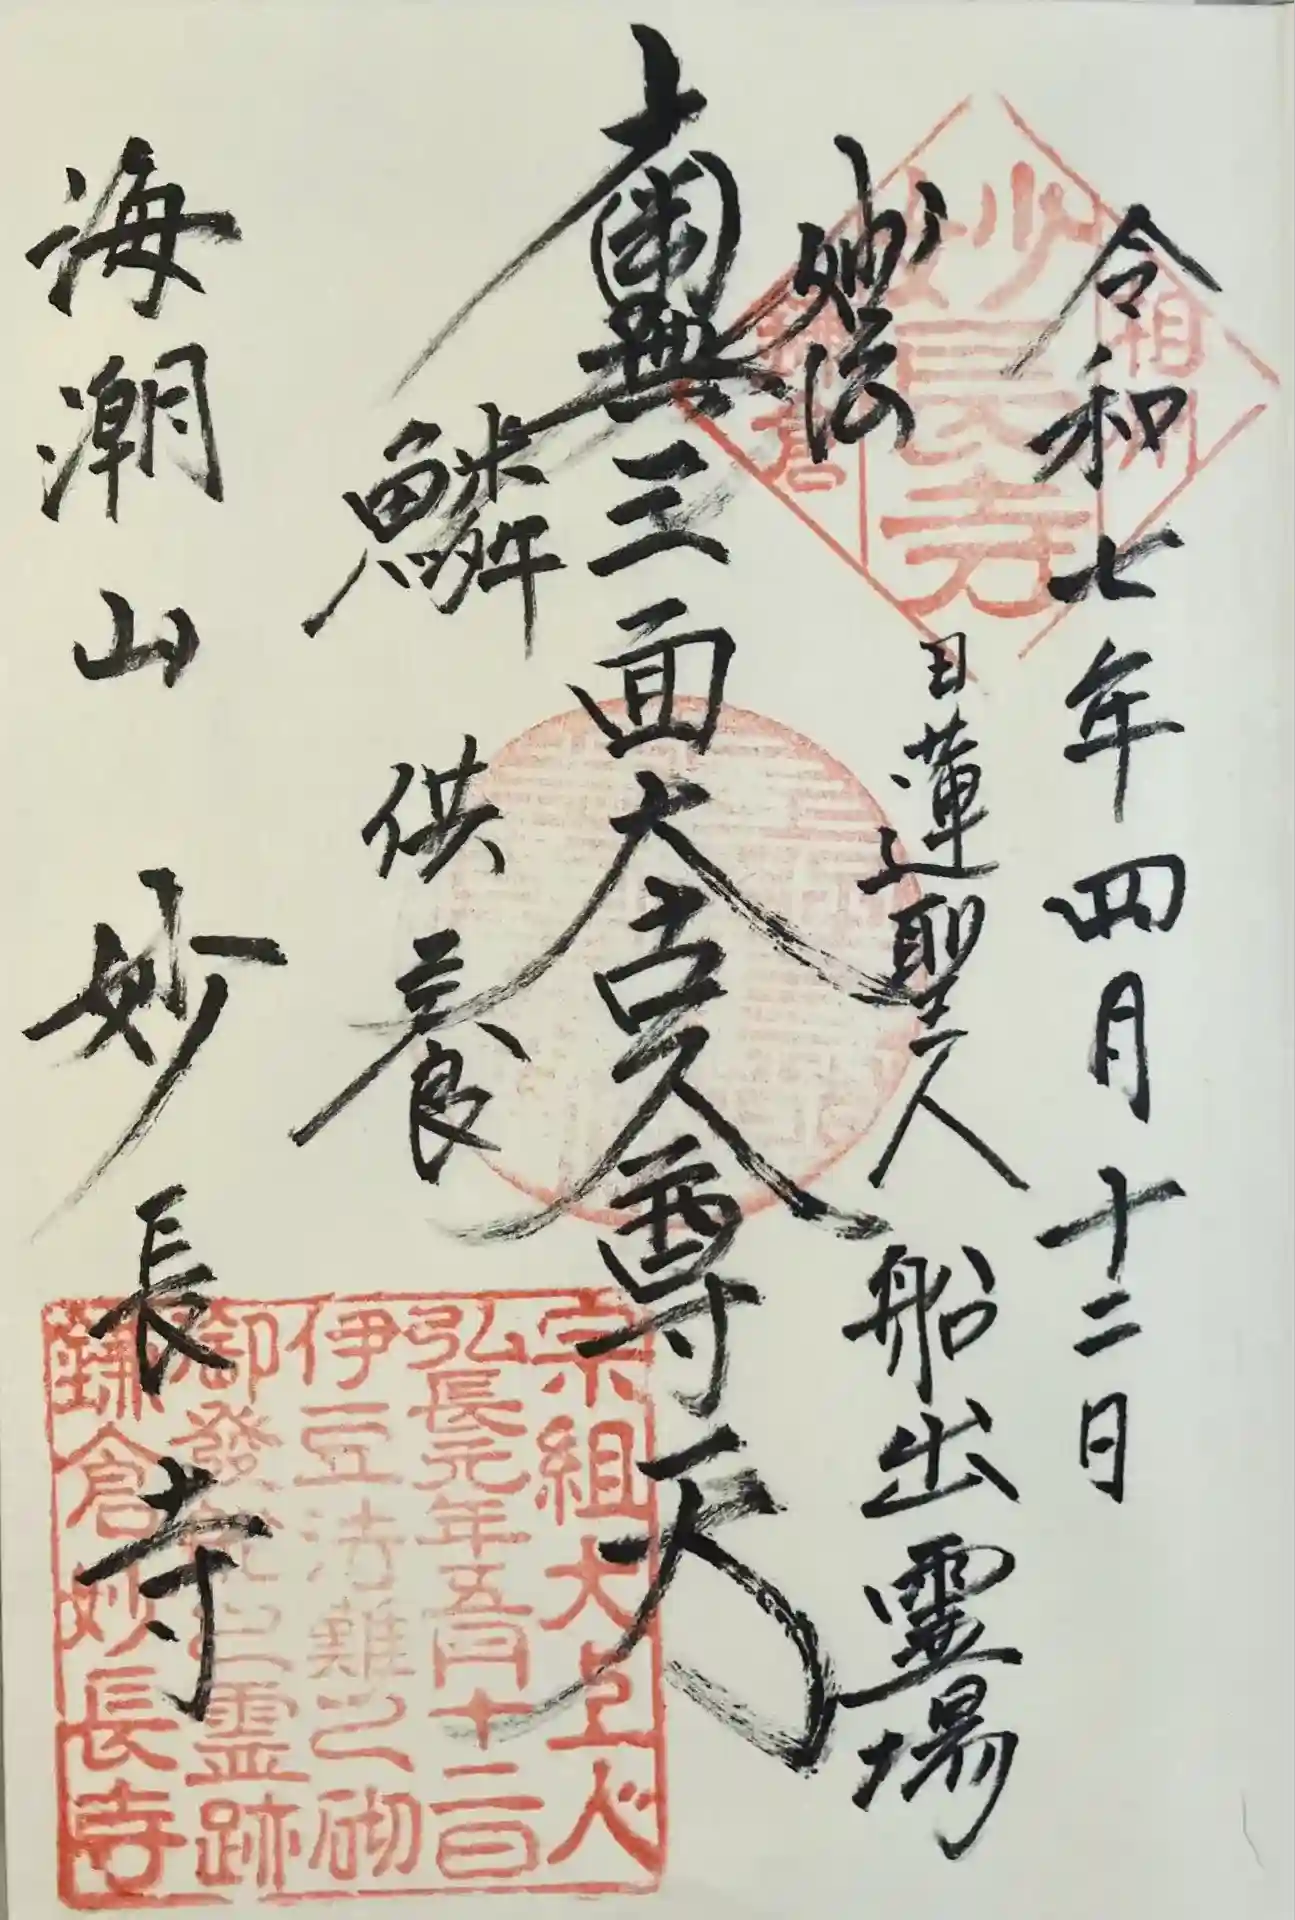 令和七年四月十二日
妙法
日蓮聖人船出霊場
三面大吉尊天
鱗供養
海潮山妙長寺
妙長寺
相州
鎌倉
宗祖大上人
弘長元年五月十二日
伊豆法難之砌
御發船之霊跡
鎌倉妙長寺